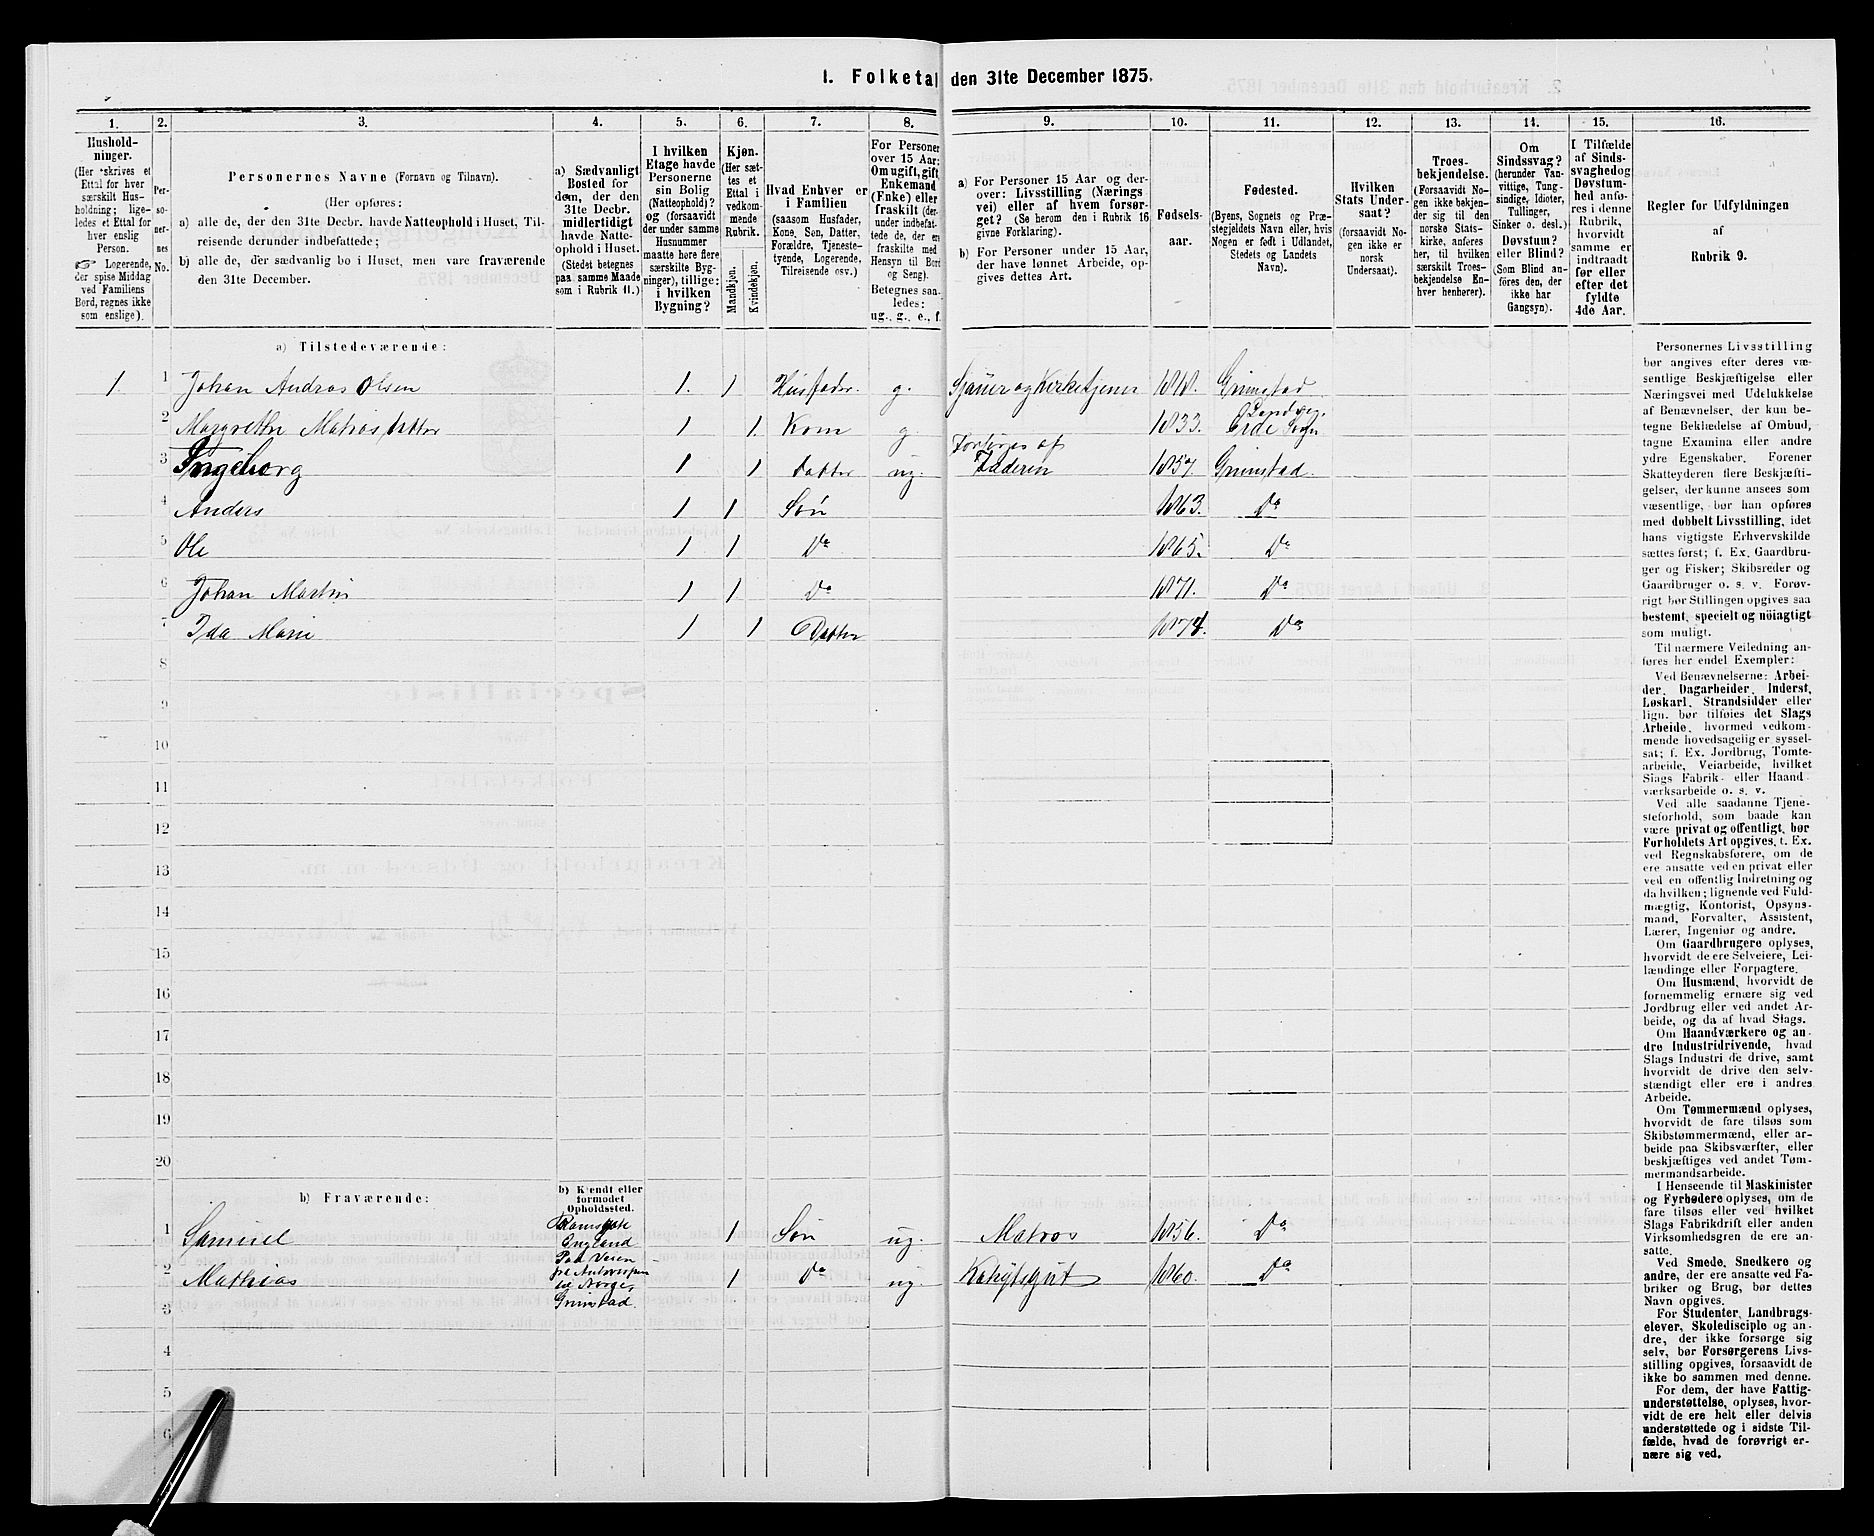 1. Folketal den 31te December 1875.
1. 2. 3. 4. 5. 6. 7. 8. 9. 10. 11. 12. 13. 14. 15. 16.
Hushold-
ninger.
(Her skrives et
Ettal for hver
særskilt Hus-
holdning; lige-
ledes et Ettal for
hver enslig
Person.
☞ Logerende,
der spise Middag
ved Familiens
Bord, regnes ikke
som enslige).
Per-
so-
ner-
nes
No.
Personernes Navne (Fornavn og Tilnavn).
(Her opføres:
a) alle de, der den 31te Decbr. havde Natteophold i Huset, Til-
reisende derunder indbefattede;
b) alle de, der sædvanlig bo i Huset, men vare fraværende
den 31te December.
a) Sædvanligt
Bosted for
dem, der den
31te Decbr.
midlertidigt
havde Natte-
ophold i Huset.
(Stedet betegnes
paa samme Maade
som i Rubrik 11.)
I hvilken
Etage havde
Personerne
sin Bolig
(Natteophold)?
og (forsaavidt
der under samme
Husnummer
maatte høre flere
særskilte Byg-
ninger), tillige:
i hvilken
Bygning?
Kjøn.
(Her sæt-
tes et
Ettal i
vedkom-
mende
Rubrik.
Mandkjøn.
Kvindekjøn.
Hvad Enhver er
i Familien
(saasom Husfader,
Kone, Søn, Datter,
Forældre, Tjeneste-
tyende, Logerende,
Tilreisende osv.)
For Personer
over 15 Aar:
Om ugift, gift,
Enkemand
(Enke) eller
fraskilt (der-
under indbefat-
tede de, der ere
fraskilte med
Hensyn til Bord
og Seng).
Betegnes saa-
ledes:
ug., g., e., f.
a) For Personer 15 Aar og der-
over: Livsstilling (Nærings
vei) eller af hvem forsør-
get? (Se herom den i Rubrik 16
givne Forklaring).
b) For Personer under 15 Aar,
der have lønnet Arbeide, op-
gives dettes Art.
Fødsels-
aar.
Fødested.
(Byens, Sognets og Præ-
stegjeldets Navn eller, hvis
Nogen er født i Udlandet,
Stedets og Landets
Navn).
Hvilken
Stats Under-
saat?
(forsaavidt No-
gen ikke er
norsk
Undersaat).
Troes-
bekjendelse.
(Forsaavidt No-
gen ikke bekjen-
der sig til den
norske Stats-
kirke, anføres
her, til hvilken
særskilt Troes-
bekjendelse En-
hver henhører).
Om
Sindssvag?
(herunder Van-
vittige, Tung-
sindige, Idioter,
Tullinger,
Sinker o. desl.)
Døvstum?
eller Blind?
(Som Blind an-
føres den, der
ikke har
Gangsyn).
I Tilfælde
af Sinds-
svaghed og
Døvstum-
hed anfø-
res i denne
Rubrik,
hvorvidt
samme er
indtraadt
før eller
efter det
fyldte
4de Aar.
Regler for Udfyldningen
af
Rubrik 9.
a) Tilstedeværende:
1. 1 Johan Andras Olsen 1. 1 Husfader g. Sjauer og Kirketjener Grimstad
2 Margrethe 1 1. Kone g. 1833.
3 Ingeborg 1 1 Datter ug. Forsörges af Faderen 1857. Grimstad.
4 Anders 1 1 Søn 1863. Do
5 Ole 1 1 Do 1865. Do
6 Johan Martin 1 1 Do 1871. Do
7 Ida Marie 1 1 Datter 1874. Do
8
9
10
11
12
13
14
15
16
17
18
19
20
b) Fraværende:
b) Kjendt eller
formodet
Opholdssted.
1 Samuel Ramsgate England 1 Søn ug. Matros 1856. Do
2 Mathias Paa Veien fra Antverpen til Norge, Grimstad 1 Do ug. Kahytsgut 1860. Do
3
4
5
6
Personernes Livsstilling
bør angives efter deres væ-
sentlige Beskjæftigelse eller
Næringsvei med Udelukkelse
af Benævnelser, der kun be-
tegne Beklædelse af Ombud,
tagne Examina eller andre
ydre Egenskaber. Forener
Skatteyderen flere Beskjæfti-
gelser, der kunne ansees som
væsentlige, bør han opføres
med dobbelt Livsstilling, idet
hans vigtigste Erhvervskilde
sættes først; f. Ex. Gaardbru-
ger og Fisker; Skibsreder og
Gaardbruger o. s. v. Forøv-
rigt bør Stillingen opgives saa
bestemt, specielt og nöiagtigt
som muligt.
Til nærmere Veiledning an-
føres her endel Exempler:
Ved Benævnelserne: Arbei-
der, Dagarbeider, Inderst,
Løskarl, Strandsidder eller
lign. bør tilføies det Slags
Arbeide, hvormed vedkom-
mende hovedsagelig er syssel-
sat; f. Ex. Jordbrug, Tomte-
arbeide, Veiarbeide, hvilket
Slags Fabrik- eller Haand-
værksarbeide o. s. v.
Ved alle saadanne Tjene-
steforhold, som baade kan
være privat og offentligt, bør
Forholdets Art opgives, f. Ex.
ved Regnskabsførere, om de
ere ansatte ved en privat eller
ved en offentlig Indretning og
da hvilken; lignende ved Fuld-
mægtig, Kontorist, Opsyns-
mand, Forvalter, Assistent,
Lærer, Ingeniør og andre.
Om Gaardbrugere oplyses,
hvorvidt de ere Selveiere, Lei-
lændinge eller Forpagtere.
Om Husmænd, hvorvidt de
fornemmelig ernære sig ved
Jordbrug eller ved andet Ar-
beide, og da af hvad Slags.
Om Haandværkere og an-
dre Industridrivende, hvad
Slags Industri de drive, samt
hvorvidt de drive den selv-
stændigt eller ere i andres
Arbeide.
Om Tømmermænd oplyses,
hvorvidt de fare tilsøs som
Skibstømmermænd, eller ar-
beide paa Skibsværfter, eller
beskjæftiges ved andet Tøm-
mermandsarbeide.
I Henseende til Maskinister
og Fyrbødere oplyses, om de
fare tilsøs eller ved hvilket
Slags Fabrikdrift eller anden
Virksomhedsgren de ere an-
satte.
Ved Smede, Snedkere og
andre, der ere ansatte ved Fa-
briker og Brug, bør dettes
Navn opgives.
For Studenter, Landbrugs-
elever, Skoledisciple og an-
dre, der ikke forsørge sig
selv, bør Forsørgerens Livs-
stilling opgives, forsaavidt de
ikke bo sammen med denne.
For dem, der have Fattig-
understøttelse, oplyses, hvor-
vidt de ere helt eller delvis
understøttede og i sidste Til-
fælde, hvad de forøvrigt er-
nære sig ved.